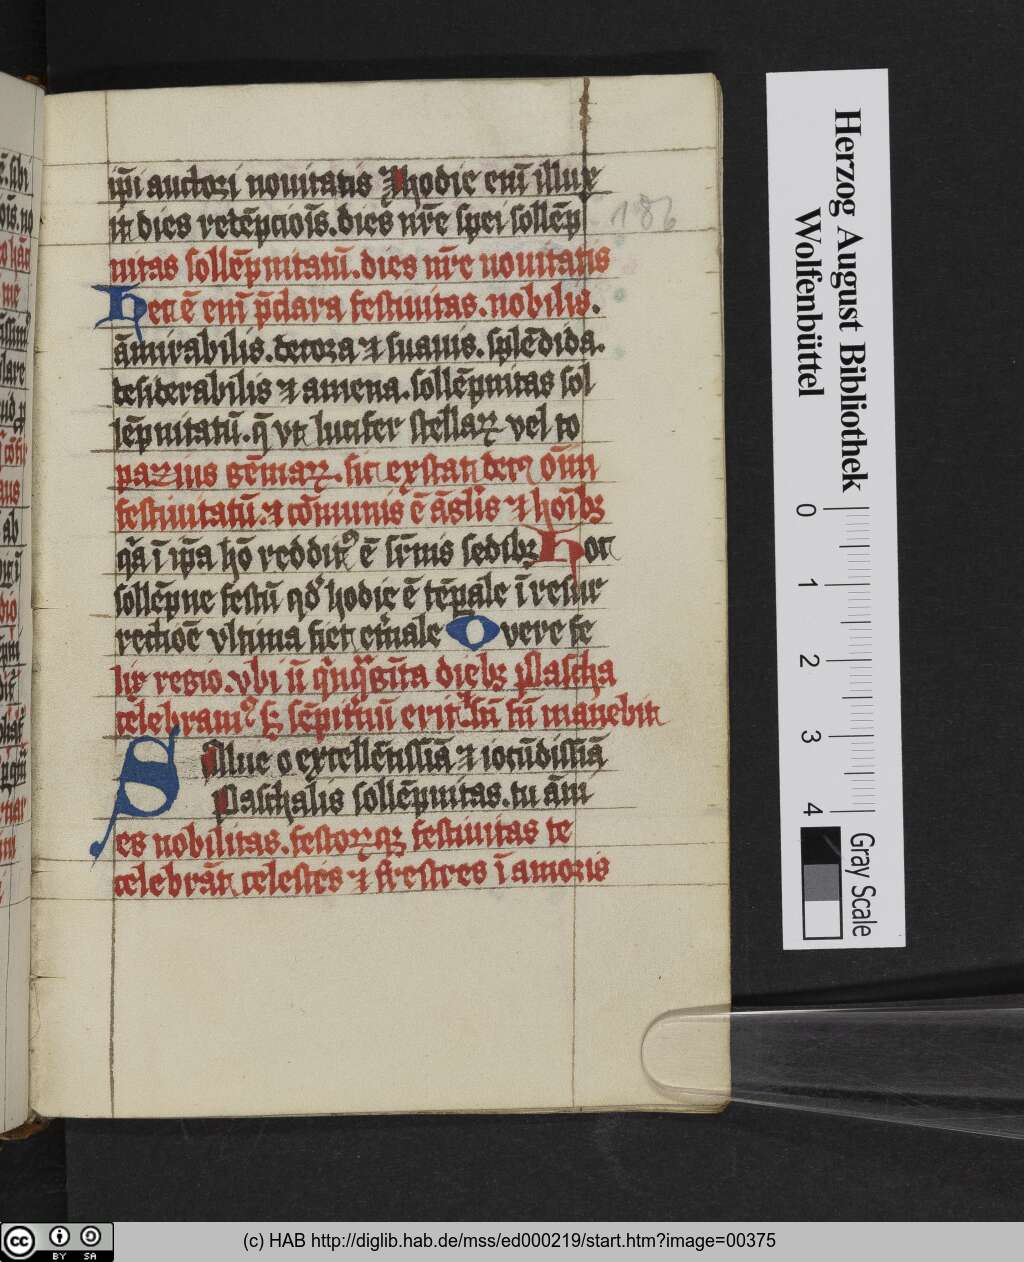 ip̄i auctori nouitatis Hodie enī illux
it dies redēpciōis. dies nr̄e spei sollēp
nitas sollēpnitatū. dies nr̄e nouitatis
Hec ē enī p̄clara festiuitas. nobilis.
āmirabilis. decora et suauis. splēdida.
desiderabilis et amena. sollēpnitas sol
lēpnitatū. q̄ vt lucifer stellaꝝ vel to
pazius gēmaꝝ. sic exstat decꝰ oīm
festiuitatū. et cōmunis ē āglis et hoībꝫ
q̄a ī ip̄a hō redditꝰ ē sr̄nis sedibꝫ Hoc
sollēpne festū qd̓ hodie ē tēpale ī resur
rectiōe vltima fiet et̓nale O vere fe
lix regio. vbi nō q̄nq̄gīta diebꝫ Pascha
celebramꝰ sꝫ sēpit̓nū erit
Salue o excellētissīa et iocūdissīa
Paschalis sollēpnitas. tu ām
es nobilitas. festoꝝqꝫ festiuitas te
celebrāt celestes et t̓restres ī amoris
186
Herzog August Bibliothek
Wolfenbüttel
0 1 2 3 4
Gray Scale
cc BY SA
(c) HAB http://diglib.hab.de/mss/ed000219/start.htm?image=00375